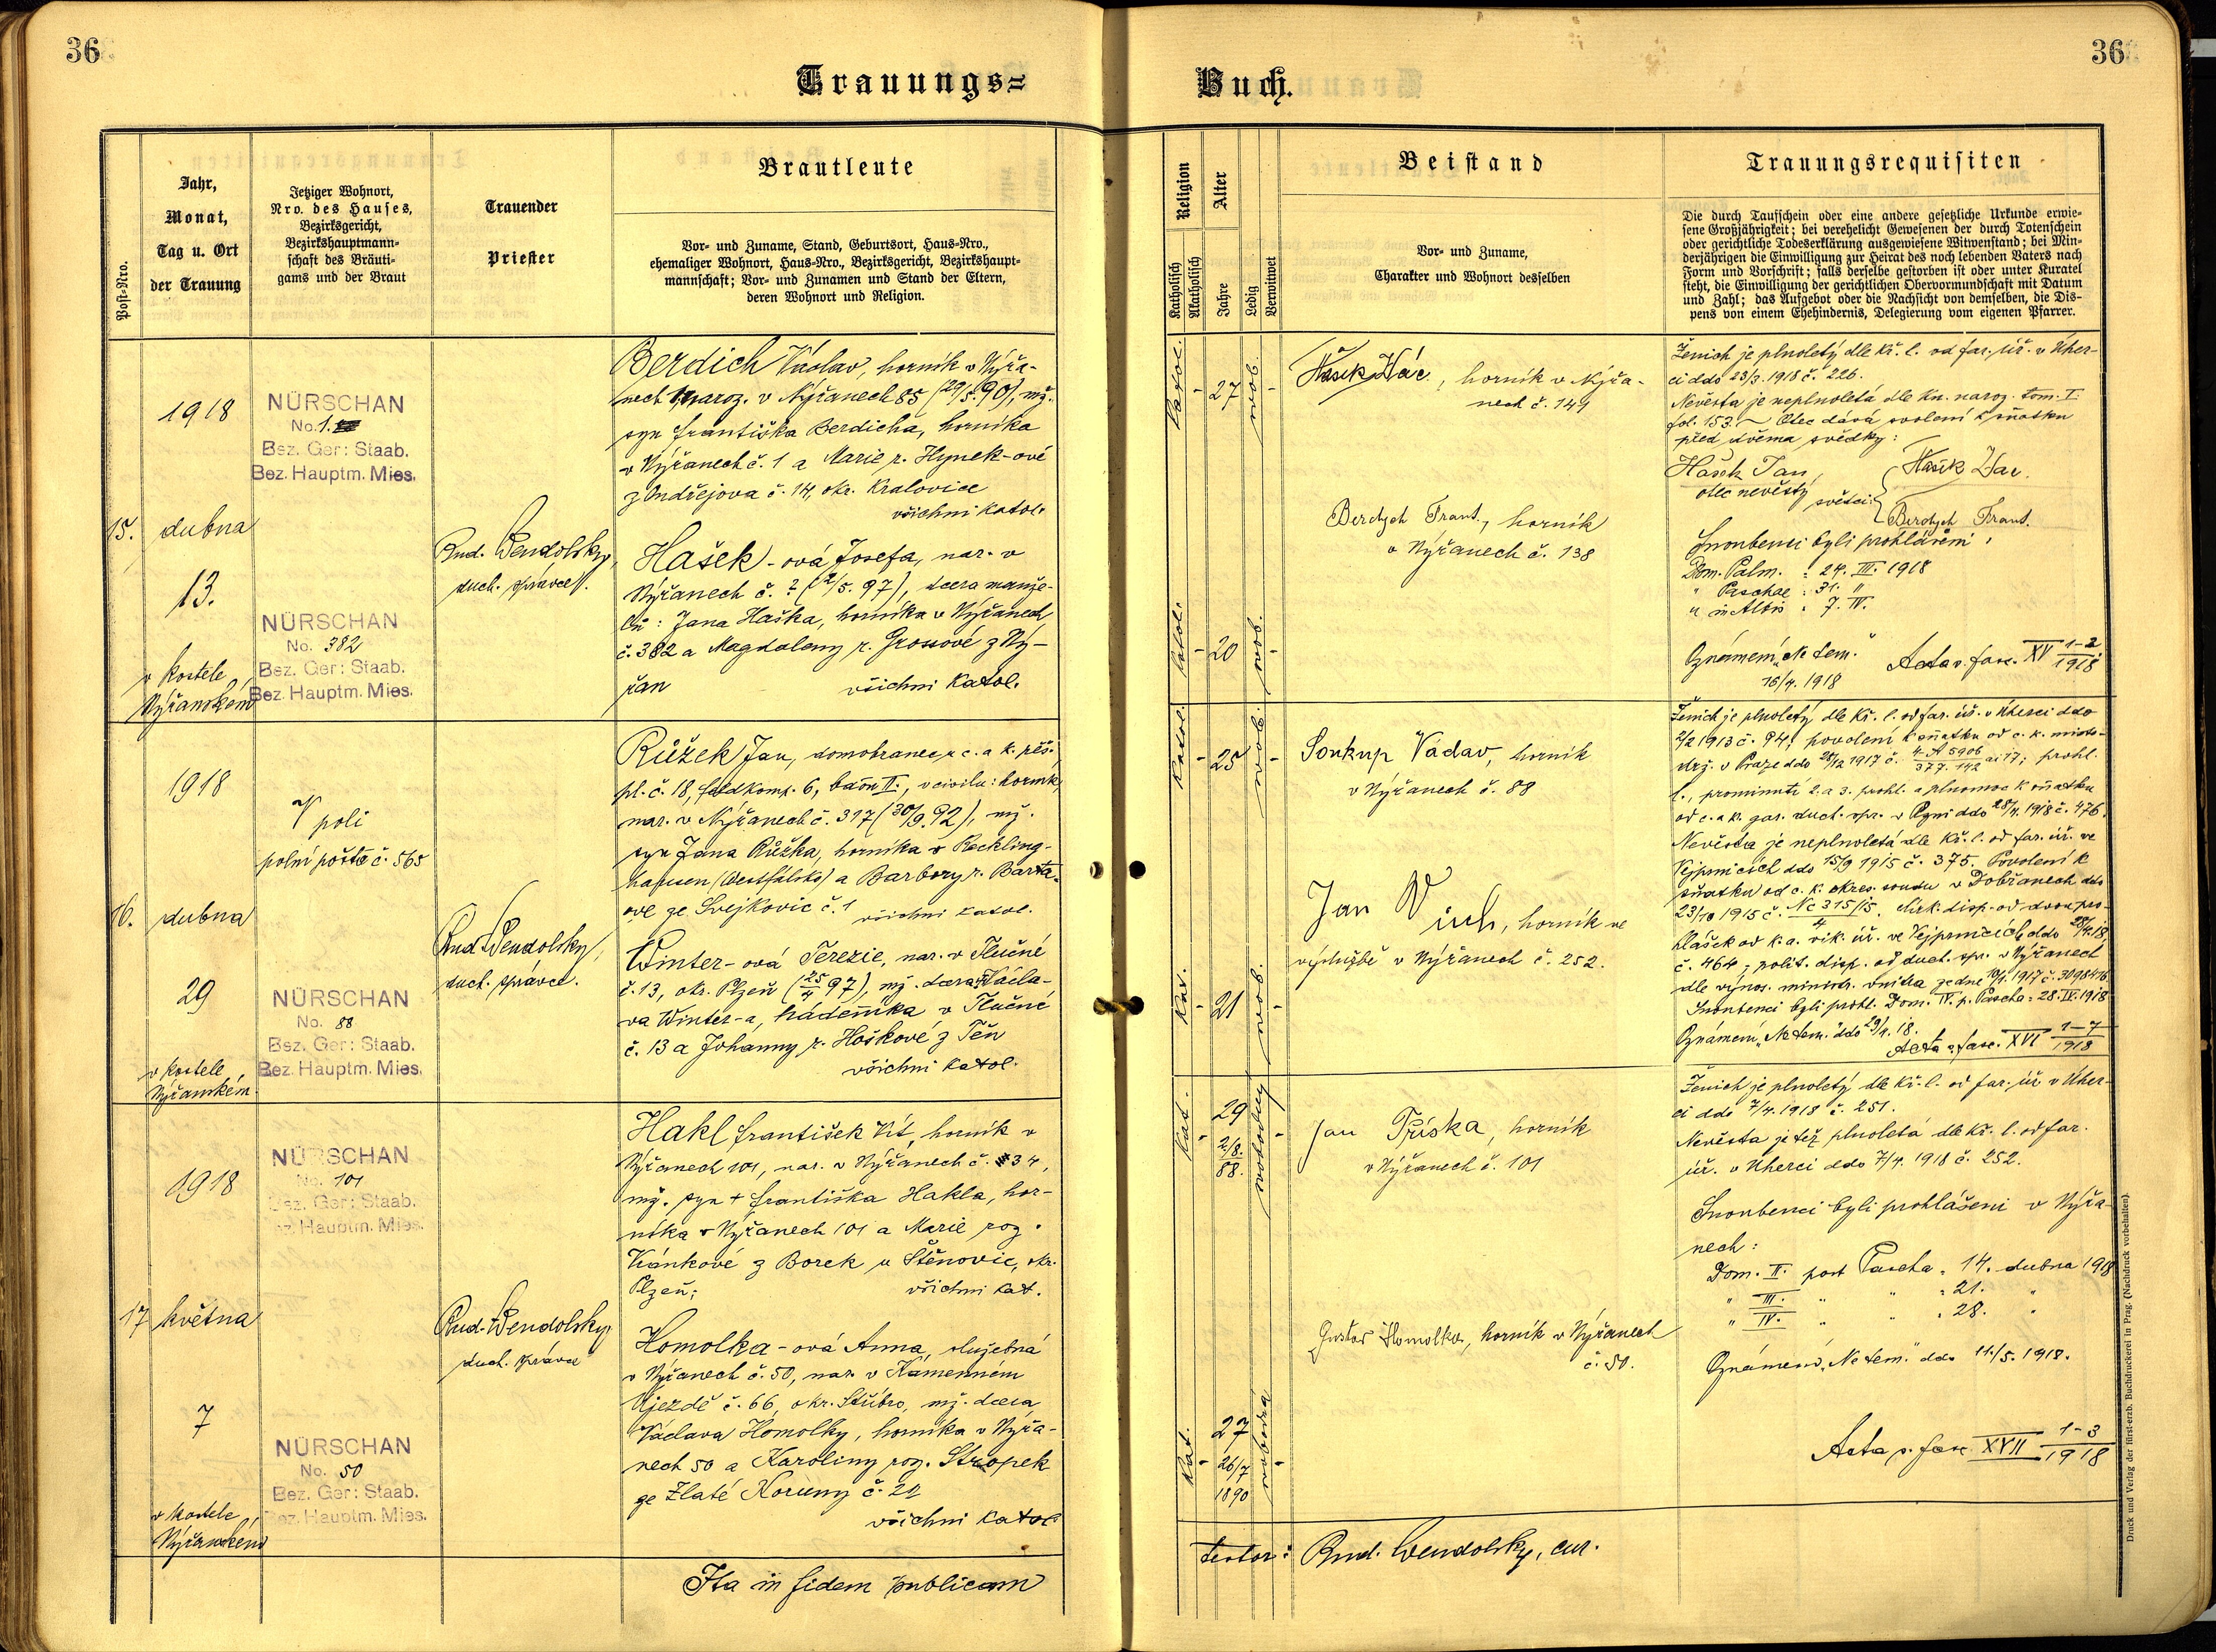 36
36
Trauungs=
Buch.
Post-Nro.
Jahr,
Monat,
Tag u. Ort
der Trauung
Jetziger Wohnort,
Nro. des Hauses,
Bezirksgericht,
Bezirkshauptmann-
schaft des Bräuti-
gams und der Braut
Trauender
Priester
Brautleute
Vor- und Zuname, Stand, Geburtsort, Haus-Nro.,
ehemaliger Wohnort, Haus-Nro., Bezirksgericht, Bezirkshaupt-
mannschaft; Vor- und Zunamen und Stand der Eltern,
deren Wohnort und Religion.
Religion
Katholisch
Akatholisch
Alter
Jahre
Ledig
Verwitwet
Beistand
Vor- und Zuname,
Charakter und Wohnort desselben
Trauungsrequisiten
Die durch Taufschein oder eine andere gesetzliche Urkunde erwie-
sene Großjährigkeit; bei verehelicht Gewesenen der durch Totenschein
oder gerichtliche Todeserklärung ausgewiesene Witwenstand; bei Min-
derjährigen die Einwilligung zur Heirat des noch lebenden Vaters nach
Form und Vorschrift; falls derselbe gestorben ist oder unter Kuratel
steht, die Einwilligung der gerichtlichen Obervormundschaft mit Datum
und Zahl; das Aufgebot oder die Nachsicht von demselben, die Dis-
pens von einem Ehehindernis, Delegierung vom eigenen Pfarrer.
15.
1918
dubna
13.
v kostele
Nýřanském
NÜRSCHAN
No. 1.
Bez. Ger: Staab.
Bez. Hauptm. Mies.
NÜRSCHAN
No. 382
Bez. Ger: Staab.
Bez. Hauptm. Mies.
Rud. Wendolský,
duch. správce.
Berdich Václav, horník v Nýřa-
nech 1, naroz. v Nýřanech 85 (29/5. 90), mž.
syn Františka Berdicha, horníka
v Nýřanech č. 1 a Marie r. Hynek-ové
z Ondřejova č. 14, okr. Kralovice
všichni katol.
Hašek-ová Josefa, nar. v
Nýřanech č. ? (2/5. 97), dcera manže-
lů: Jana Haška, horníka v Nýřanech
č. 382 a Magdaleny r. Grossové z Ný-
řan všichni katol.
Katol. - 27 svob. -
Katol. - 20 svob. -
Hašek Vác, horník v Nýřa-
nech č. 149
Berdych Frant., horník
v Nýřanech č. 138
Ženich je plnoletý dle kř. l. od far. úř. v Úher-
ci ddo 23/3. 1918 č. 226.
Nevěsta je neplnoletá dle kn. naroz. tom. I.
fol. 153. Otec dává svolení k sňatku
před dvěma svědky:
Hašek Jan,
otec nevěsty
svědci:
Berdych Frant.
Snoubenci byli prohlášeni:
Dom. Palm. : 24. III. 1918
" Paschae : 31. "
" in Albis : 7. IV.
Oznámení „Ne tem."
16/4. 1918
Acta v. fasc. XV 1-2/1918
16.
1918
dubna
29
v kostele
Nýřanském.
V poli
polní pošta č. 565
NÜRSCHAN
No. 88
Bez. Ger: Staab.
Bez. Hauptm. Mies.
Rud. Wendolský,
duch. správce.
Růžek Jan, domobranec u c. a k. pěš.
pl. č. 18, feldkomp. 6, baon II., v civilu: horník,
nar. v Nýřanech č. 317 (30/9. 92), mž.
syn Jana Růžka, horníka v Reckling-
hausen (Westfálsko) a Barbory r. Barta-
ové ze Svejkovic č. 1 všichni katol.
Winter-ová Terezie, nar. v Tlučné
č. 13, okr. Plzeň (25/4 97), mž. dcera Václa-
va Winter-a, nádenníka v Tlučné
č. 13 a Johanny r. Hoškové z Těn
všichni katol.
Katol. - 25 svob. -
Kat. - 21 svob. -
Soukup Václav, horník
v Nýřanech č. 88
Jan Wich, horník ve
výslužbě v Nýřanech č. 252.
Ženich je plnoletý dle kř. l. od far. úř. v Úherci ddo
2/2 1913 č. 94; povolení k sňatku od c. k. místo-
drž. v Praze ddo 28/12 1917 č. 4-A 5906/377. 142 ai 17; prohl.
l., prominutí 2. a 3. prohl. a plnomoc k sňatku
od c. a k. gar. duch. spr. v Plzni ddo 28/4. 1918 č. 476.
Nevěsta je neplnoletá dle kř. l. od far. úř. ve
Vejprnicích ddo 15/9 1915 č. 375. Povolení k
sňatku od c. k. okres. soudu v Dobřanech ddo
23/10 1915 č. Nc 315/15/4. Círk. disp. od dvou pro-
hlášek od k. a. vik. úř. ve Vejprnicích ddo 28/4. 18,
č. 464; polit. disp. od duch. spr. v Nýřanech
dle výnos. minist. vnitra ze dne 10/4. 1917 č. 30984/16
Snoubenci byli prohl. Dom. IV. p. Pascha: 28. IV. 1918
Oznámení „Ne tem." ddo 29/4. 18.
Acta v. fasc. XVI 1-7/1918
17
1918
května
7
v kostele
Nýřanském
NÜRSCHAN
No. 101
Bez. Ger: Staab.
Bez. Hauptm. Mies.
NÜRSCHAN
No. 50
Bez. Ger: Staab.
Bez. Hauptm. Mies.
Rud. Wendolský,
duch. správce
Hakl František Vít, horník v
Nýřanech 101, nar. v Nýřanech č. 34,
mž. syn + Františka Hakla, hor-
níka v Nýřanech 101 a Marie roz.
Vránkové z Borek u Štěnovic, okr.
Plzeň; všichni kat.
Homolka-ová Anna, služebná
v Nýřanech č. 50, nar. v Kamenném
Újezdě č. 66, okr. Stříbro, mž. dcera
Václava Homolky, horníka v Nýřa-
nech 50 a Karoliny roz. Stropek
ze Zlaté Koruny č. 21
všichni katol
Kat. - 29 2/8. 88. svobodný -
Kat. - 27 26/7 1890 svobodná -
Jan Tříska, horník
v Nýřanech č. 101
Gustav Homolka, horník v Nýřanech
č. 50.
Ženich je plnoletý dle kř. l. od far. úř. v Úher-
ci ddo 7/4. 1918 č. 251.
Nevěsta je též plnoletá dle kř. l. od far.
úř. v Úherci ddo 7/4. 1918 č. 252.
Snoubenci byli prohlášeni v Nýřa-
nech:
Dom. II. post Pascha : 14. dubna 1918
" III. " " : 21. "
" IV. " " : 28. "
Oznámení „Ne tem." ddo 11./5. 1918.
Acta v. fasc. XVII 1-3/1918
Ita in fidem publicam
testor: Rud. Wendolský, cur.
Druck und Verlag der fürst-erzb. Buchdruckerei in Prag. (Nachdruck vorbehalten).